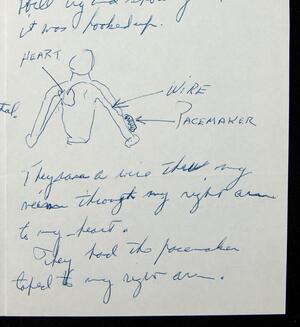 it was hooked up.
HEART
WIRE
PACEMAKER
They ran a wire thru my
vein through my right arm
to my heart.
They had the pacemaker
taped to my right arm.